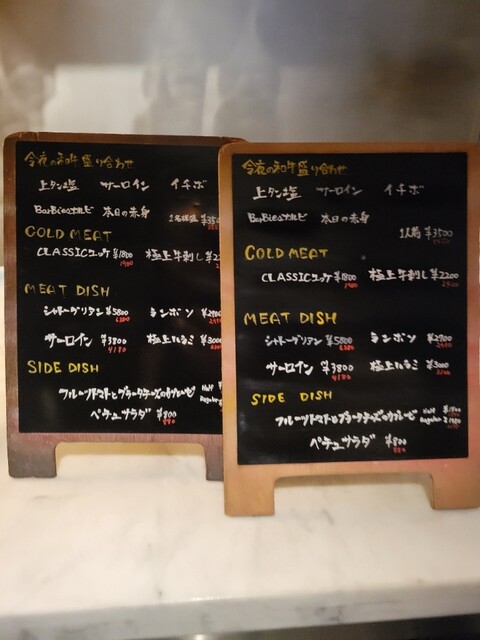 今夜の和牛盛り合わせ
上タン塩 サーロイン イチボ
BarBieカルビ 本日の赤身
COLD MEAT
CLASSICユッケ ¥1800
1980
極上牛刺し
MEAT DISH
シャトーブリアン ¥5800
6380
ランボソ ¥2900
サーロイン ¥3800
4180
極上ハラミ ¥3000
SIDE DISH
フルーツトマトとブラータチーズのカプレーゼ Half
Regular
ペチュサラダ ¥800
880
今夜の和牛盛り合わせ
上タン塩 サーロイン イチボ
BarBieカルビ 本日の赤身
1人前 ¥3500
COLD MEAT
CLASSICユッケ ¥1800
1980
極上牛刺し ¥2200
2420
MEAT DISH
シャトーブリアン ¥5800
6380
ランボソ ¥2900
サーロイン ¥3800
4180
極上ハラミ ¥3000
SIDE DISH
フルーツトマトとブラータチーズのカプレーゼ Half
Regular
ペチュサラダ ¥800
880